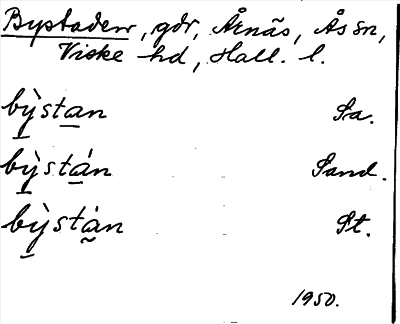 Bystaden, gdr, Årnäs, Ås sn,
Viske hd, Hall. l.
bỳstan Sa.
bỳstán Sand.
bỳstàn St.
1950.